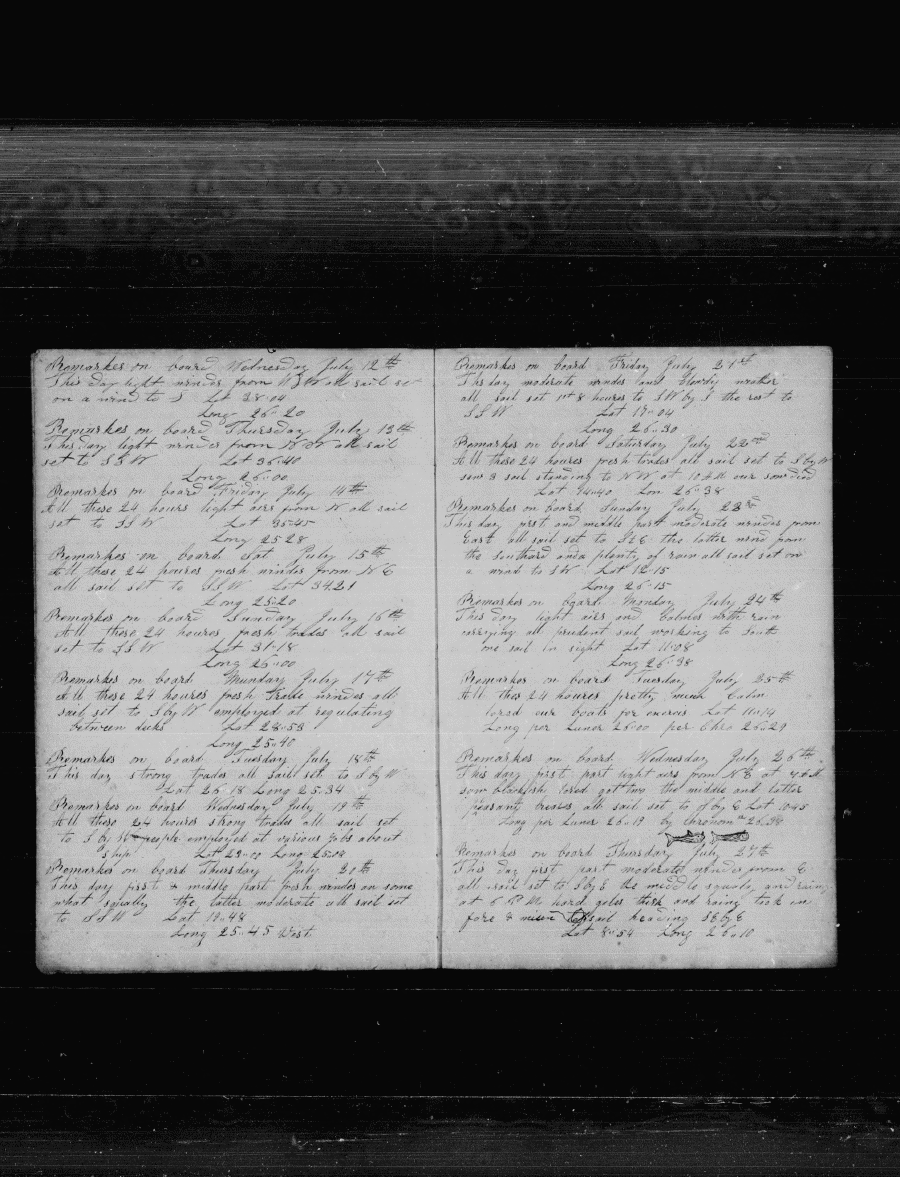 Remarkes on board Wednesday July 12th
This day light windes from WSW all sail set
on a wind to S Lat 38-04
Long 26-20
Remarkes on board Thursday July 13th
This day light windes from NW all sail
set to SSW Lat 36-40
Long 26-00
Remarkes on board Friday July 14th
All these 24 hours light airs from N all sail
set to SSW Lat 35-45
Long 25 28
Remarkes on board Sat July 15th
All these 24 houres fresh windes from NE
all sail set to SSW Lat 34.21
Long 25-20
Remarkes on board Sunday July 16th
All these 24 houres fresh trades all sail
set to SSW Lat 31-18
Long 26-00
Remarkes on board Munday July 17th
All these 24 houres fresh trade windes all
sail set to S by W employed at regulating
between decks Lat 28-53
Long 25-40
Remarkes on board Tuesday July 18th
This day strong trades all sail set to S by W
Lat 26-18 Long 25-34
Remarkes on board Wednesday July 19th
All these 24 houres strong trades all sail set
to S by W people employed at various jobs about
ship Lat 23-00 Long 25-04
Remarkes on board Thursday July 20th
This day first & middle part fresh windes an some
what squally the latter moderate all sail set
to SSW Lat 19-48
Long 25-45 West
Remarkes on board Friday July 21st
This day moderate windes and cloudy weather
all sail set 1st 8 houres to SW by S the rest to
SSW Lat 17-04
Long 26-30
Remarkes on board Saturday July 22nd
All these 24 houres fresh trades all sail set to S by W
saw 3 sail standing to NW at 10 AM our sow died
Lat 14-40 Lon 26-38
Remarkes on board Sunday July 23rd
This day first and middle part moderate windes from
East all sail set to the latter wind from
the southard and a plenty of rain all sail set on
a wind to SW Lat 12-15
Long 26-15
Remarkes on board Monday July 24th
This day light airs and Calmes with rain
carrying all prudent sail working to South
one sail in sight Lat 11-08
Long 26-38
Remarkes on board Tuesday July 25th
All thes 24 houres pretty much Calm
lored our boats for exercis Lat 11-14
Long per Luner 26-00 per Chro 26-29
Remarkes on board Wednesday July 26th
This day first part light airs from NE at AM
saw blackfish lored got two the middle and latter
pleasant breases all sail set to S by E Lat 10-45
Long per Luner 26-19 by chronom 26-38
Remarkes on board Thursday July 27th
This day first part moderate windes from E
all sail set to S by E the middle squaly and rainy
at 6 PM hard gales thick and rainy took in
fore & sail heading SE by E
Lat 8-54 Long 26-10